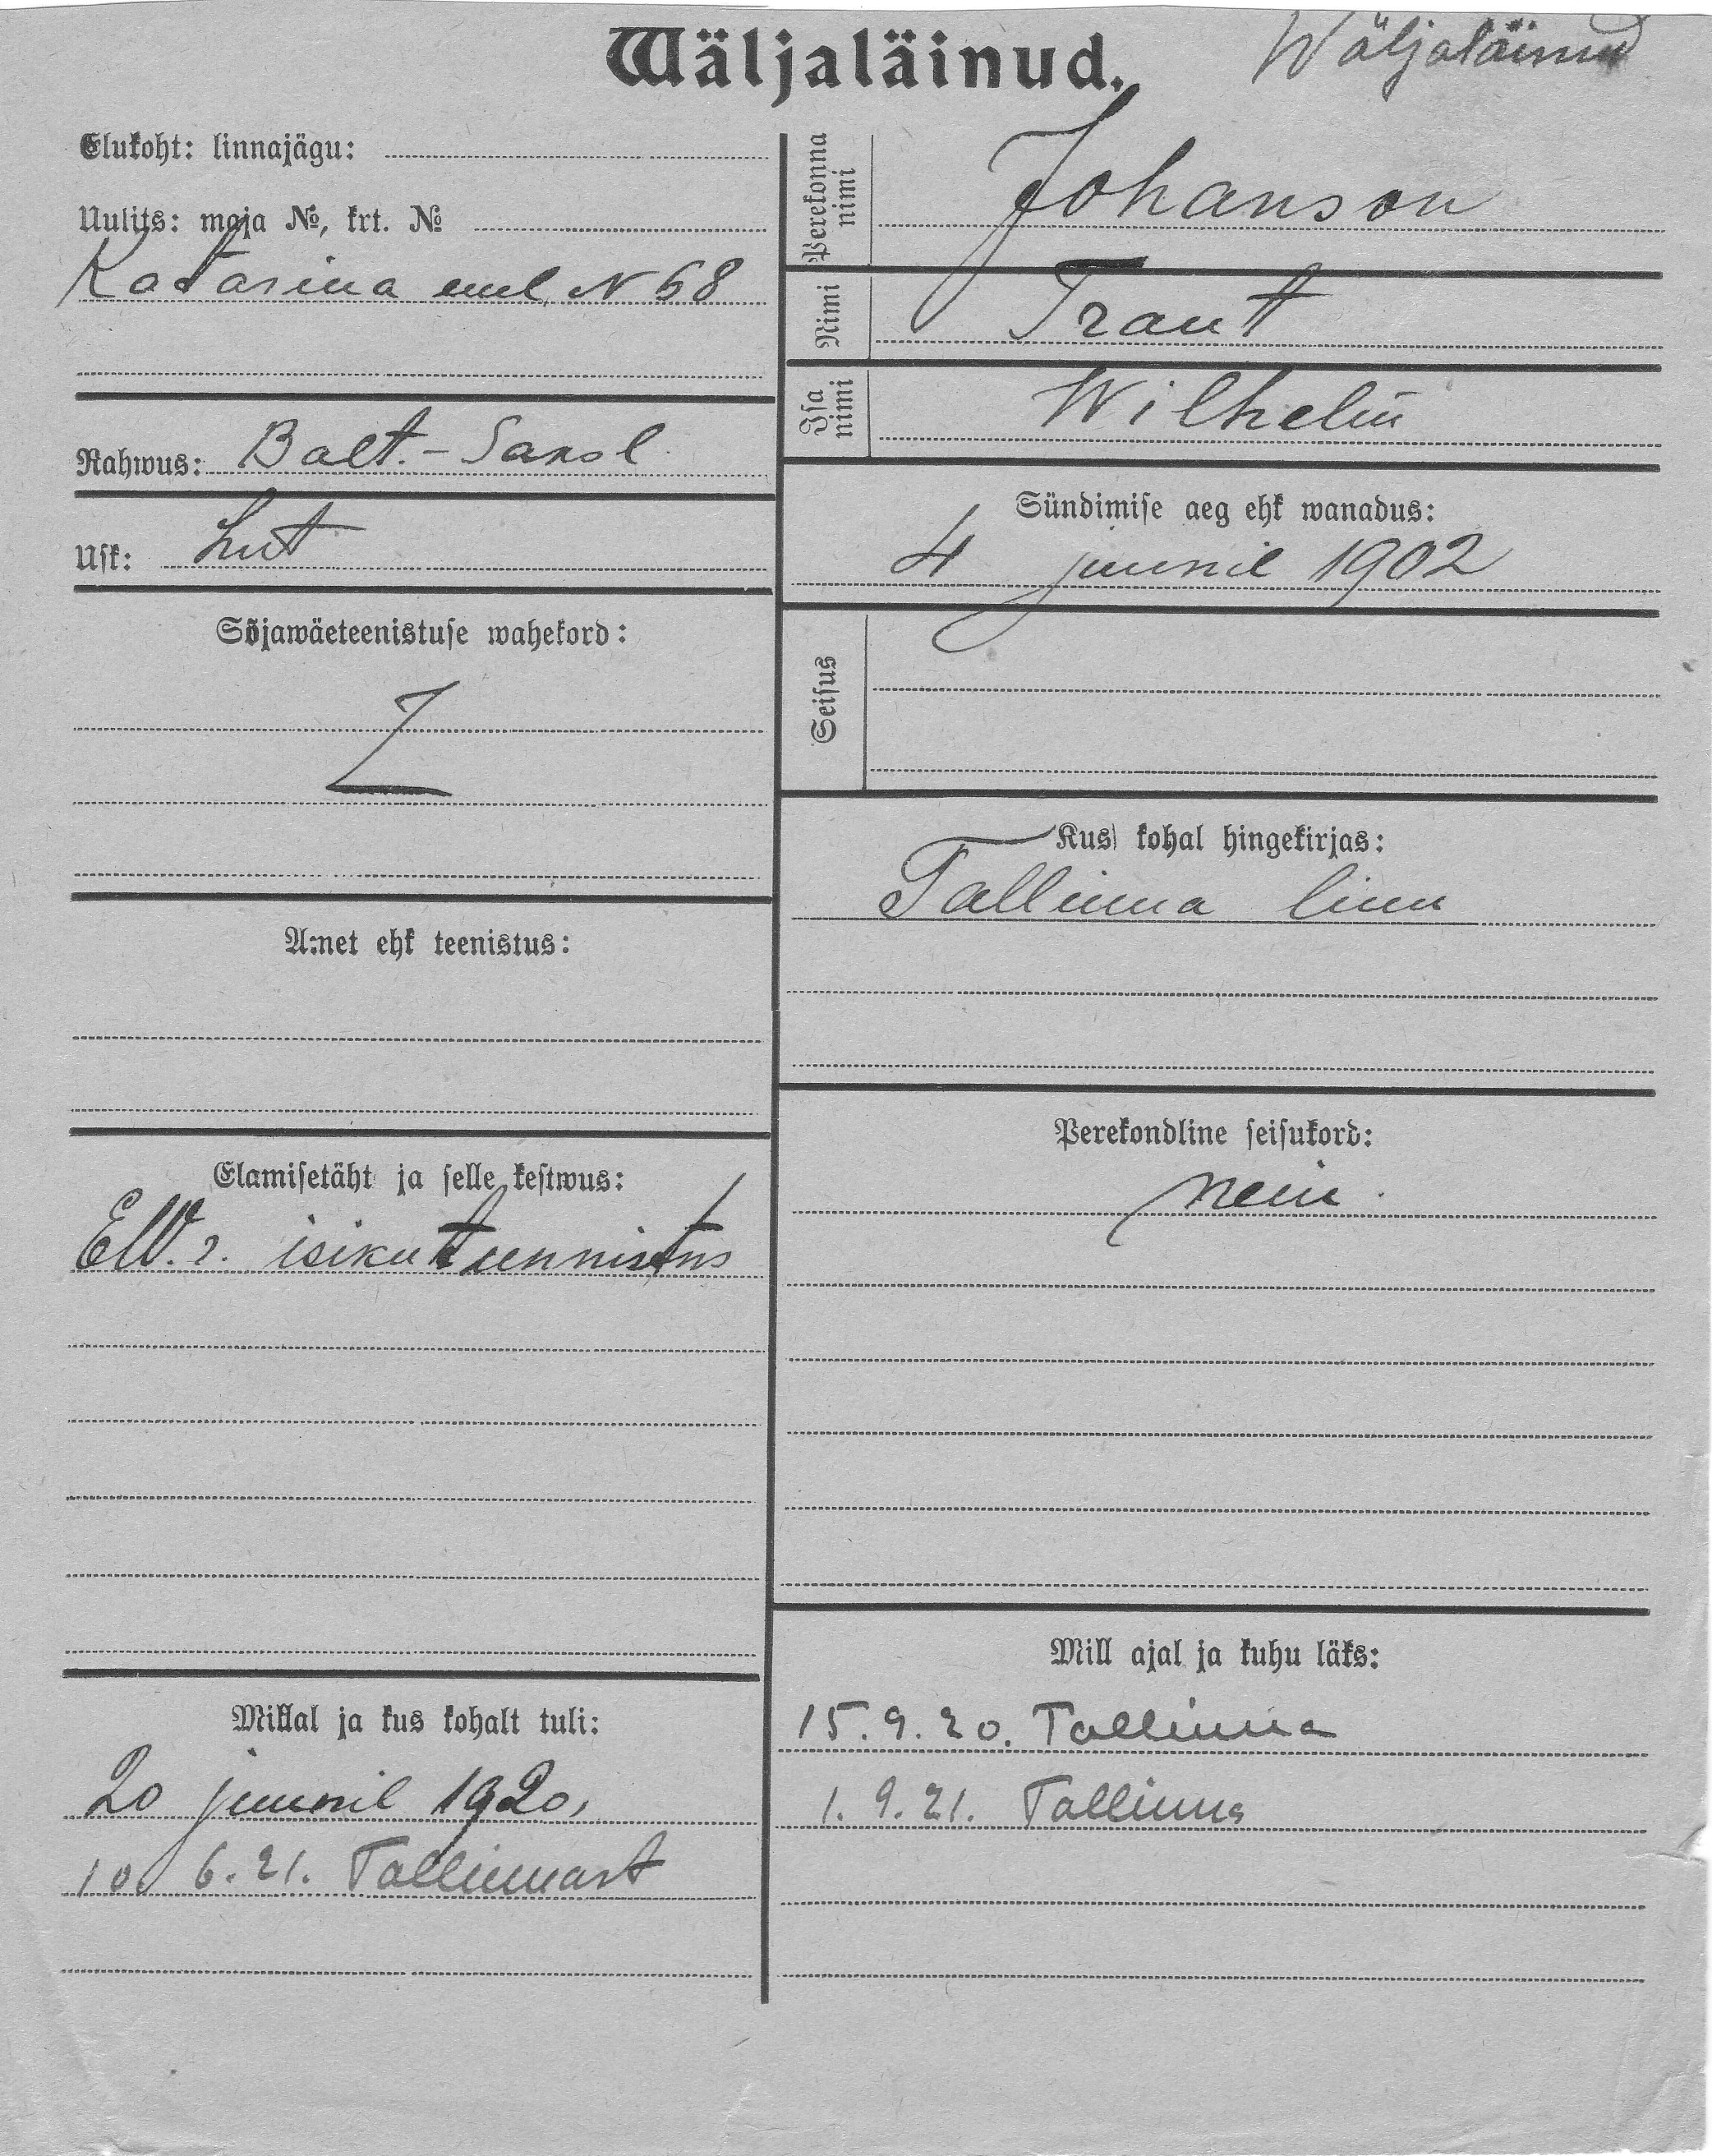 Wäljaläinud.
Wäljaläinud
Elukoht: linnajägu:
Uulits: maja №, krt. №
Katarina uul, N 68
Rahwus: Balt.-Saksl.
Usk: Lut
Sõjawäeteenistuse wahekord:
Amet ehk teenistus:
Elamisetäht ja selle kestwus:
EW. r. isikutunnistus
Millal ja kus kohalt tuli:
20 juunil 1920,
10. 6. 21. Tallinnast
Perekonna nimi
Johanson
Nimi
Traut
Isa nimi
Wilhelm
Sündimise aeg ehk wanadus:
4 juunil 1902
Seisus
Kus kohal hingekirjas:
Tallinna linn
Perekondline seisukord:
neiu.
Mill ajal ja kuhu läks:
15. 9. 20. Tallinna
1. 9. 21. Tallinna